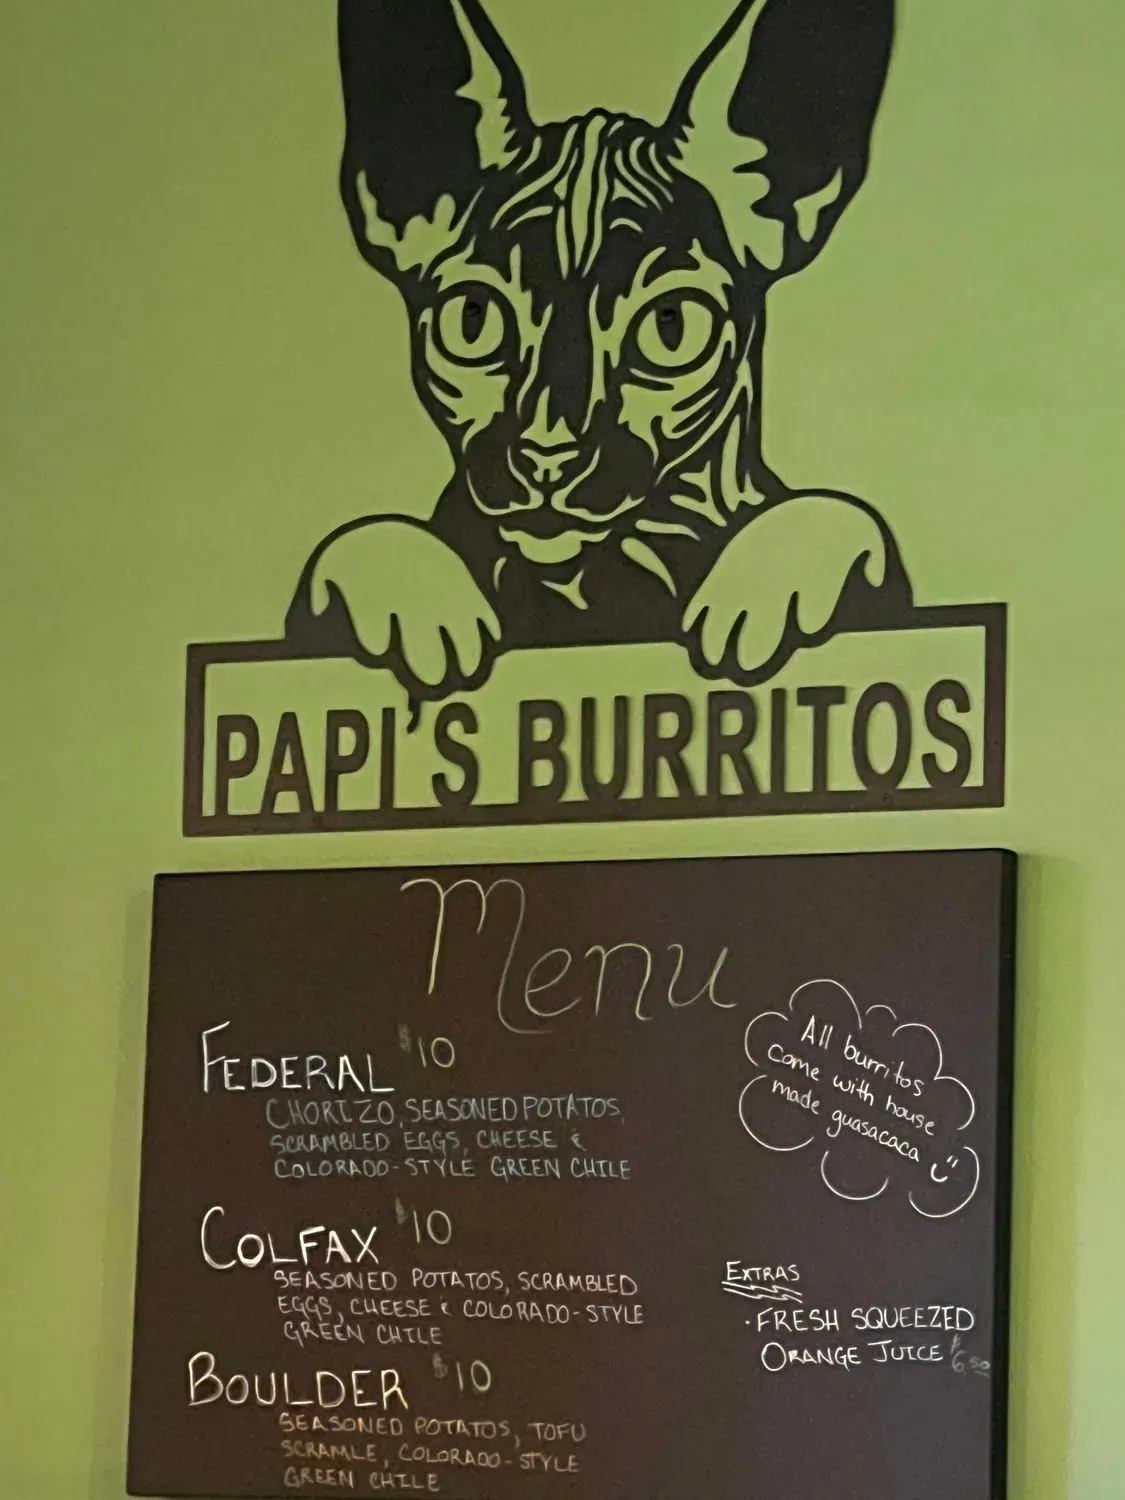 PAPI'S BURRITOS
Menu
FEDERAL $10
CHORIZO, SEASONED POTATOS,
SCRAMBLED EGGS, CHEESE &
COLORADO-STYLE GREEN CHILE
COLFAX $10
SEASONED POTATOS, SCRAMBLED
EGGS, CHEESE & COLORADO-STYLE
GREEN CHILE
BOULDER $10
SEASONED POTATOS, TOFU
SCRAMLE, COLORADO-STYLE
GREEN CHILE
All burritos
come with house
made guasacaca
EXTRAS
· FRESH SQUEEZED
ORANGE JUICE $6.50